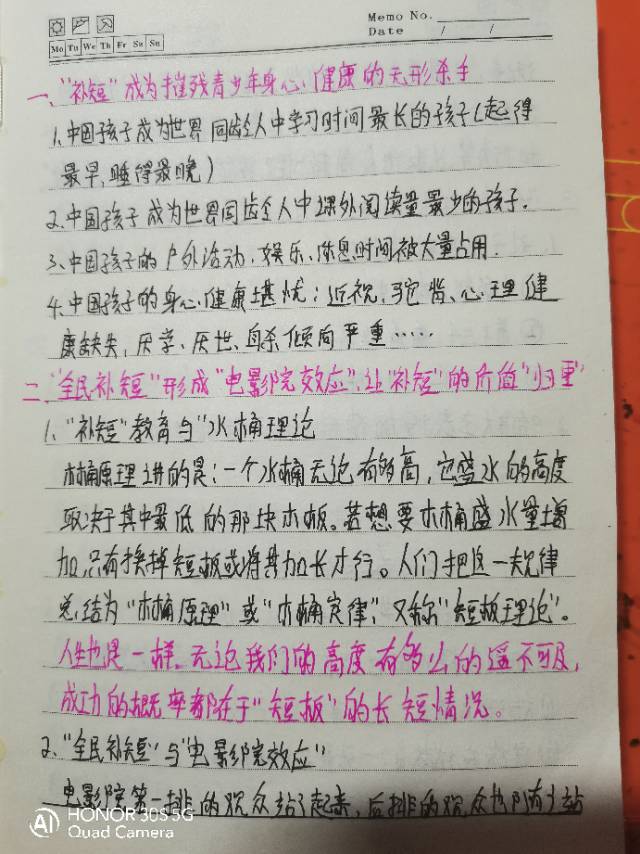 Memo No.
Mo Tu We Th Fr Sa Su
Date / /
一、"补短"成为摧残青少年身心健康的无形杀手
1、中国孩子成为世界同龄人中学习时间最长的孩子(起得
最早,睡得最晚)
2、中国孩子成为世界同龄人中课外阅读量最少的孩子.
3、中国孩子的户外活动,娱乐、休息时间被大量占用.
4、中国孩子的身心健康堪忧:近视、驼背、心理健
康缺失,厌学、厌世、自杀倾向严重……
二、"全民补短"形成"电影院效应",让"补短"的价值"归零"
1、"补短"教育与"水桶理论
木桶原理讲的是:一个水桶无论有多高,它盛水的高度
取决于其中最低的那块木板。若想要木桶盛水量增
加,只有换掉短板或将其加长才行。人们把这一规律
总结为"木桶原理"或"木桶定律",又称"短板理论"。
人生也是一样,无论我们的高度有多么的遥不可及,
成功的概率都在于"短板"的长短情况。
2、"全民补短"与"电影院效应"
电影院第一排的观众站了起来,后排的观众也只有站
HONOR 30S 5G
AI Quad Camera